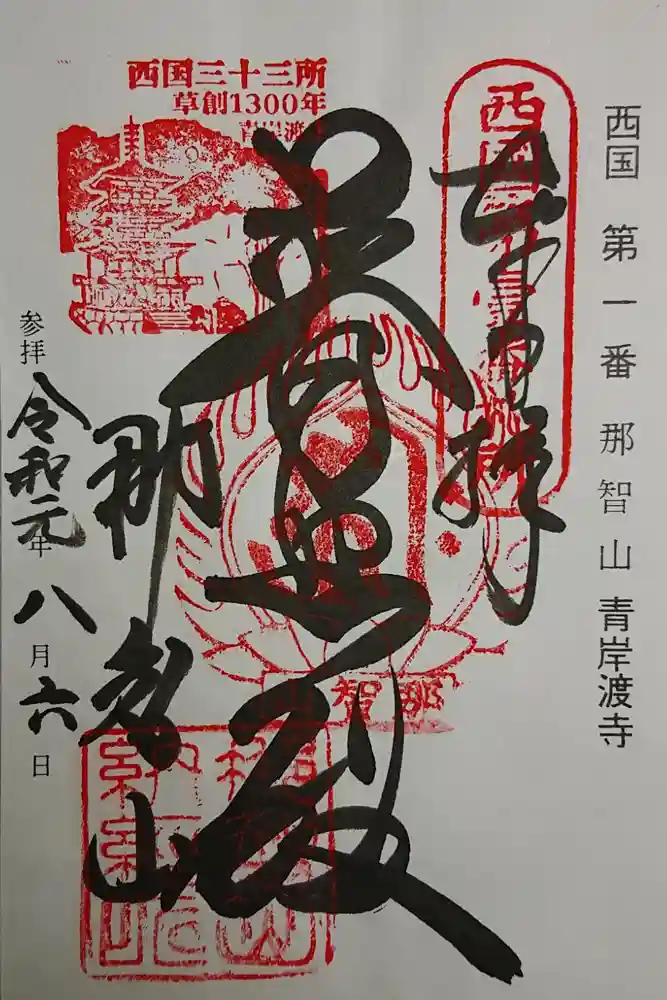 西国 第一番 那智山 青岸渡寺
奉拝
普照殿
那智山
参拝 令和元年 八月六日
西国三十三所
草創1300年
青岸渡
那智山